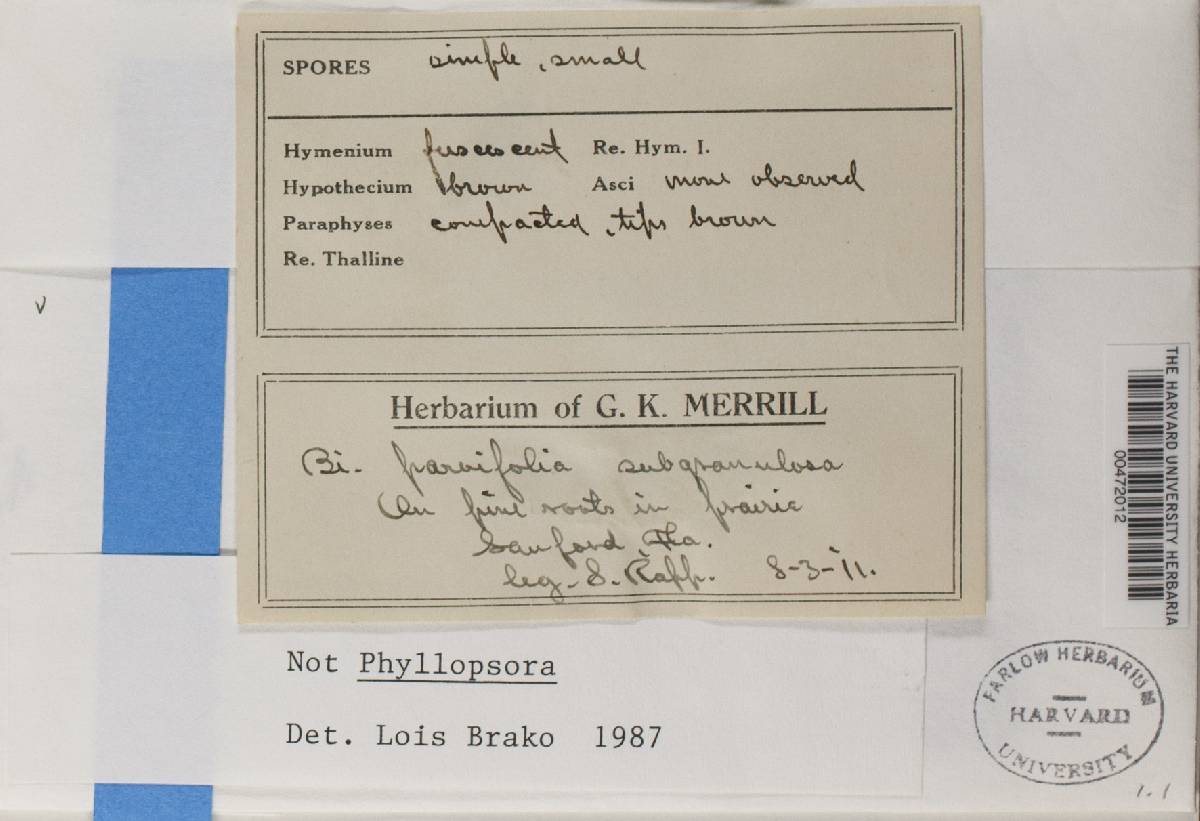 SPORES simple, small
Hymenium fuscescent Re. Hym. I.
Hypothecium brown Asci none observed
Paraphyses compacted, tips brown
Re. Thalline
v
Herbarium of G. K. MERRILL
Bi. parvifolia subgranulosa
On pine roots in prairie
Sanford, Fla.
leg. S. Rapp. 8-3-'11.
Not Phyllopsora
Det. Lois Brako 1987
THE HARVARD UNIVERSITY HERBARIA
00472012
FARLOW HERBARIUM
HARVARD
UNIVERSITY